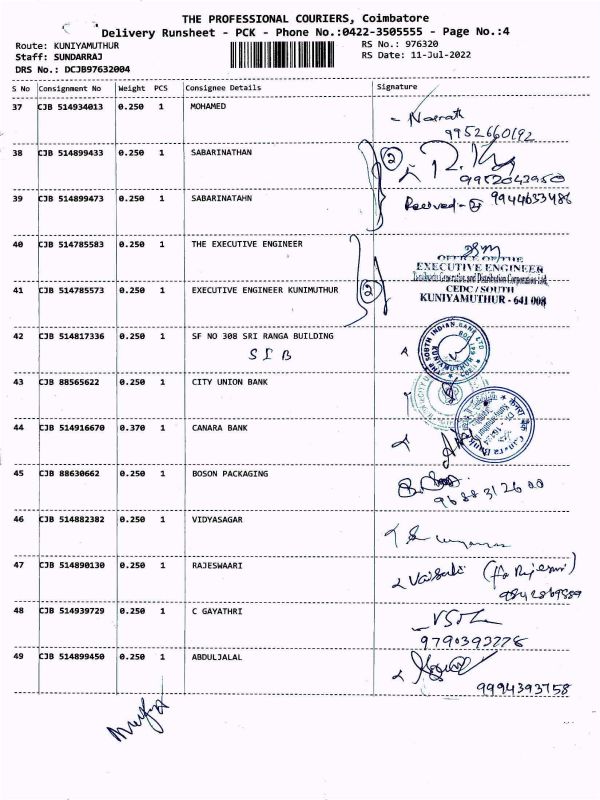 THE PROFESSIONAL COURIERS, Coimbatore
Delivery Runsheet - PCK - Phone No.:0422-3505555 - Page No.:4
Route: KUNIYAMUTHUR RS No.: 976320
Staff: SUNDARRAJ RS Date: 11-Jul-2022
DRS No.: DCJB97632004
S No Consignment No Weight PCS Consignee Details Signature
37 CJB 514934013 0.250 1 MOHAMED
9952660192
38 CJB 514899433 0.250 1 SABARINATHAN 2
9952043950
39 CJB 514899473 0.250 1 SABARINATAHN Received - 9944633486
40 CJB 514785583 0.250 1 THE EXECUTIVE ENGINEER
OFFICE OF THE
EXECUTIVE ENGINEER
Tamilnadu Generation and Distribution Corporation Ltd.
41 CJB 514785573 0.250 1 EXECUTIVE ENGINEER KUNIMUTHUR 2 CEDC / SOUTH
KUNIYAMUTHUR - 641 008
42 CJB 514817336 0.250 1 SF NO 308 SRI RANGA BUILDING
SIB
SOUTH INDIAN BANK LTD
43 CJB 88565622 0.250 1 CITY UNION BANK
44 CJB 514916670 0.370 1 CANARA BANK
45 CJB 88630662 0.250 1 BOSON PACKAGING
46 CJB 514882382 0.250 1 VIDYASAGAR
47 CJB 514890130 0.250 1 RAJESWAARI Vaisali
48 CJB 514939729 0.250 1 C GAYATHRI
9790393778
49 CJB 514899450 0.250 1 ABDULJALAL
9994393758